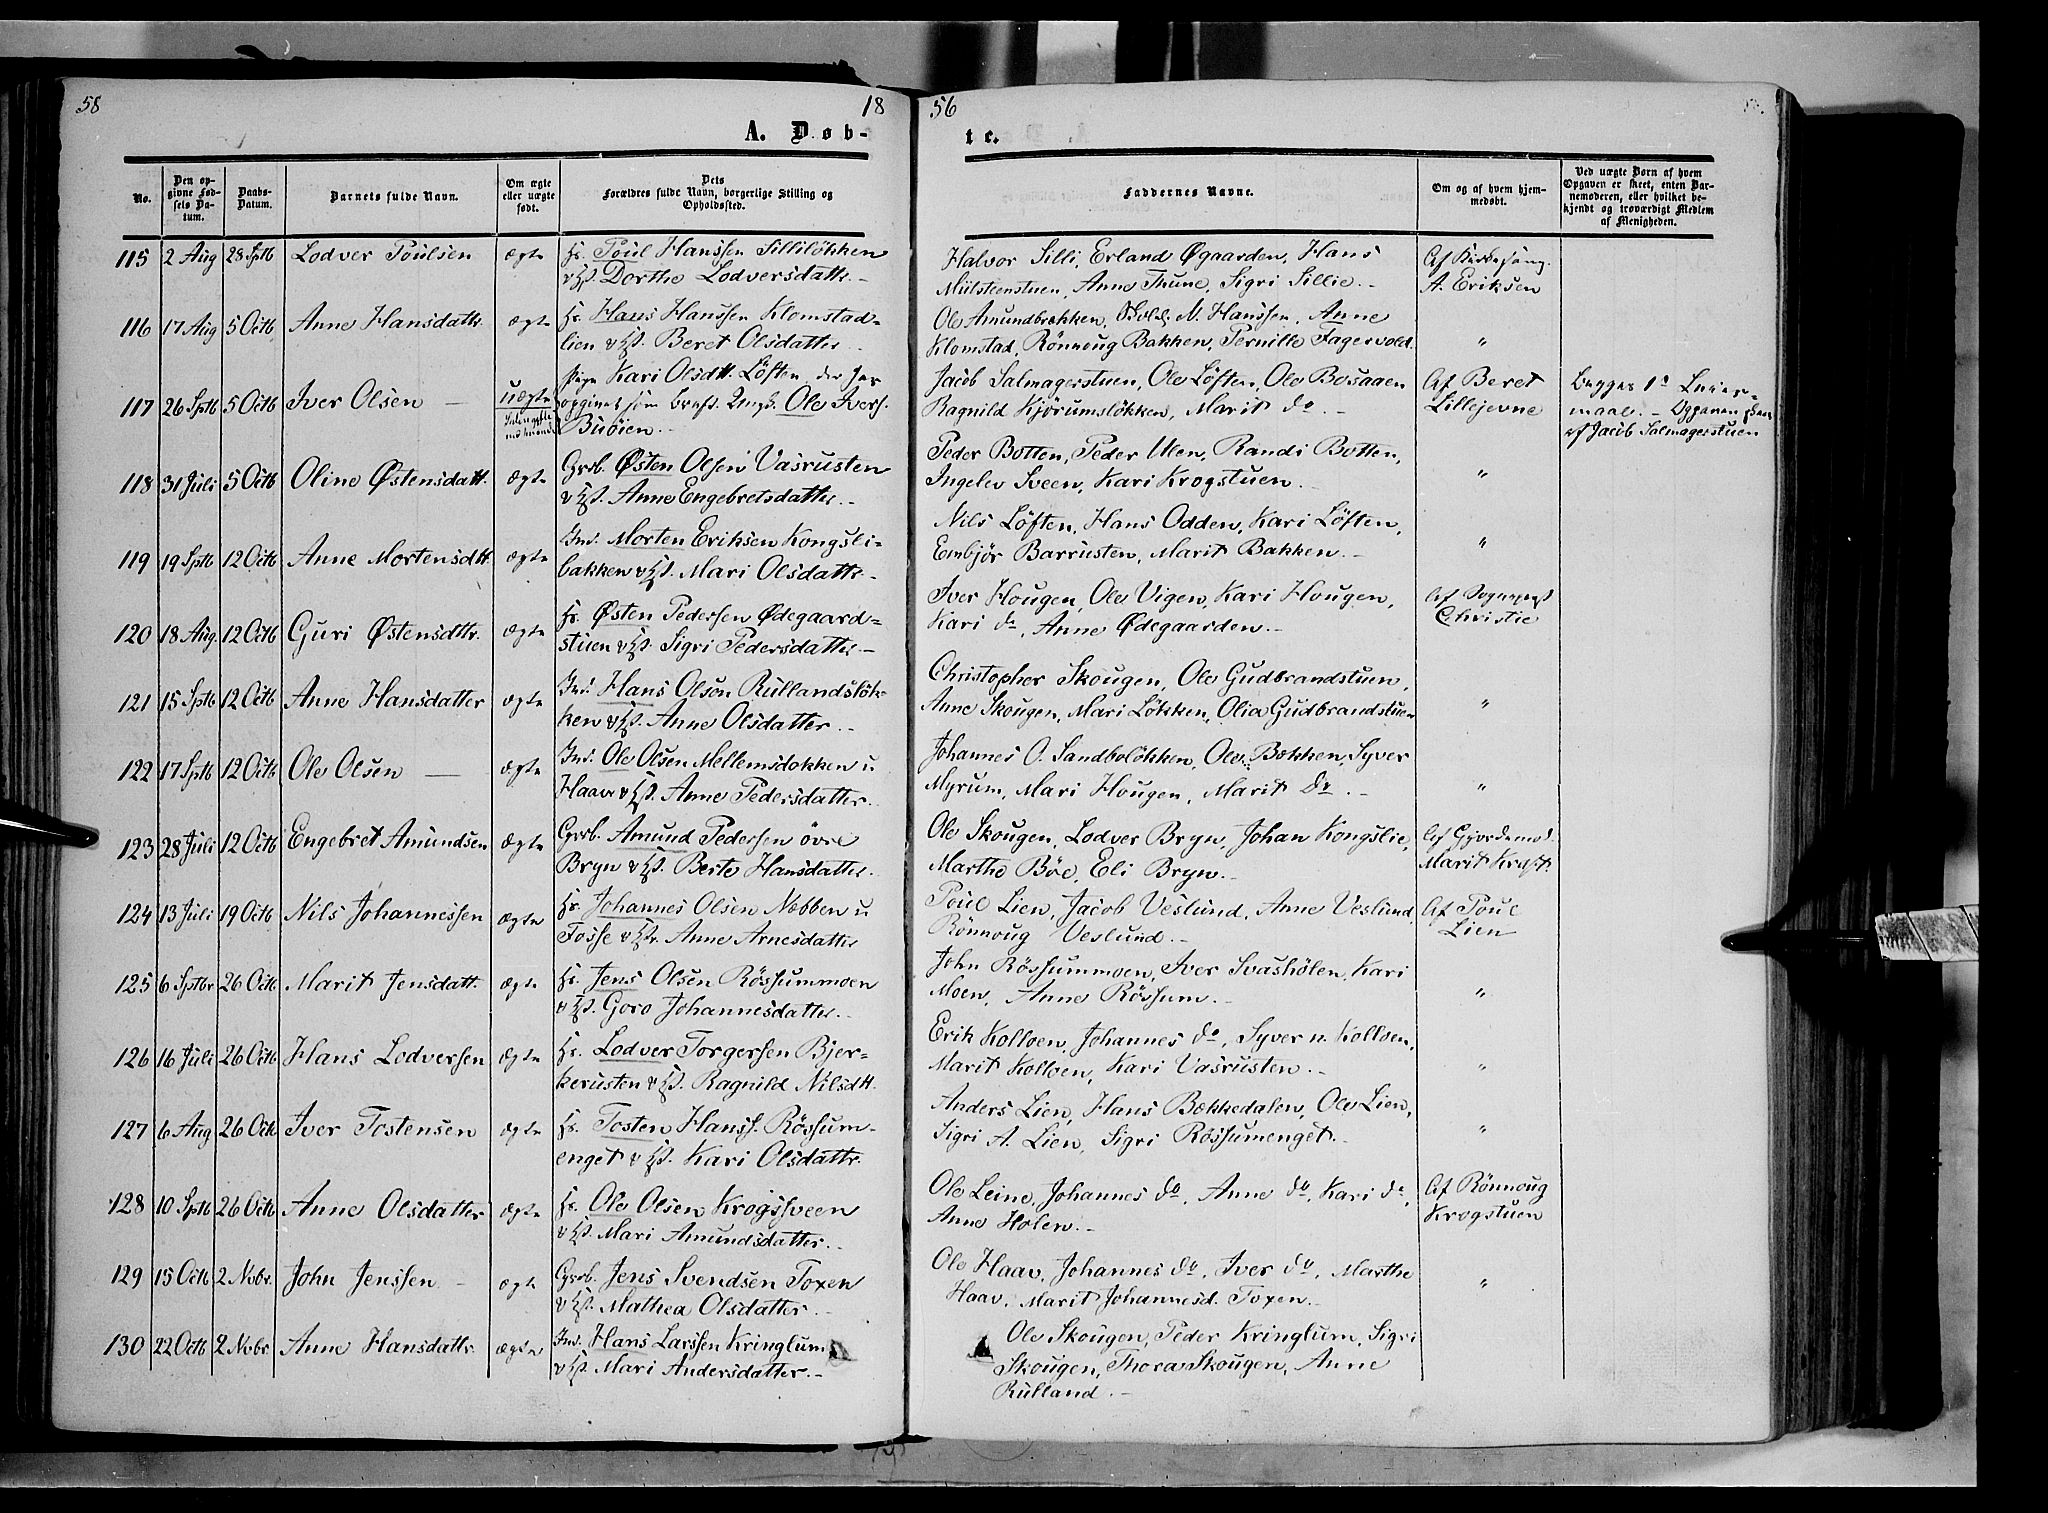 58
18
56
A. Døb-
te.
No.
Den op-
givne Fød-
sels Da-
tum.
Daabs-
Datum.
Barnets fulde Navn.
Om ægte
eller uægte
født.
Dets
Forældres fulde Navn, borgerlige Stilling og
Opholdssted.
Faddernes Navne.
Om og af hvem hjem-
medøbt.
Ved uægte Børn af hvem
Opgaven er skeet, enten Bar-
nemoderen, eller hvilket be-
kjendt og troværdigt Medlem
af Menigheden.
115 2 Aug 28 Sptb Lodver Poulsen ægte Hr. Poul Hanssen Silliløkken
Dorthe Lodversdattr. -
Halvor Silli, Erland Øgaarden, Hans
Anne Thune, Sigri Sillie. -
Af Kirkesang.
A. Eriksen
116 17 Aug 5 Octb Anne Hansdattr. ægte Hr. Hans Hanssen Klomstad-
lien Beret Olsdatter
Ole Amundbækken, N. Hanssen, Anne
Klomstad, Rönnoug Bakken, Pernille Fagervold.
"
117 26 Sptb 5 Octb Iver Olsen - uægte Pige Kari Olsdtt. Löften, der har
opgivet som Ole Ivers.
Buöien. -
Jacob Salmagerstuen, Ole Löften, Ole
Ragnild Kjörumslökken, Marit do. -
Af Beret
Lillejevne
Begges 1e Leier-
maal. - Opgaven skeet
af Jacob Salmagerstuen
118 31 Juli 5 Octb Oline Østensdatt. ægte Grb. Østen Olsen Vasrusten
Anne Engebretsdatter. -
Peder Botten, Peder Ulen, Randi Botten,
Ingelev Sveen, Kari Krogstuen. -
"
119 19 Sptb 12 Octb Anne Mortensdtt. ægte Ind. Morten Eriksen Kongsli-
bakken Mari Olsdattr. -
Nils Löften, Hans Odden, Kari Löften,
Embjör Barrusten, Marit Bakken. -
"
120 18 Aug. 12 Octb Guri Østensdttr. ægte Hr. Østen Pedersen Ødegaard-
stuen Sigri Pedersdatter -
Iver Hougen, Ole Vigen, Kari Hougen,
Kari do, Anne Ødegaarden. -
Af Sognepræst
Christie
121 15 Sptb 12 Octb Anne Hansdatter ægte Ind. Hans Olsen Rullandslök-
ken Anne Olsdatter. -
Christopher Skougen, Ole Gudbrandstuen,
Anne Skougen, Mari Lökken, Olia Gudbrandstuen
"
122 17 Sptb 12 Octb Ole Olsen - ægte Ind. Ole Olsen Mellemsdokken u.
Haave Anne Pedersdatter.
Johannes O. Sandbolökken, Ole Bækken, Syver
Myrum, Mari Hougen, Marit do. -
"
123 28 Juli 12 Octb Engebret Amundsen ægte Grb. Amund Pedersen övre
Bryn Berte Hansdatter.
Ole Skougen, Lodver Bryn, Johan Kongslie,
Marthe Böe, Eli Bryn. -
Af Gjordemod.
Marit Krogst.
124 13 Juli 19 Octb Nils Johannessen ægte Hr. Johannes Olsen Næbben u.
Fosse Anne Arnesdatter
Poul Lien, Jacob Veslund, Anne Veslund,
Rönnoug Veslund. -
Af Poul
Lien
125 6 Sptbr 26 Octb Marit Jensdatt. ægte Hr. Jens Olsen Rössummoen
Goro Johannesdatter. -
John Rössummoen, Iver Svashölen, Kari
Moen, Anne Rössum. -
"
126 16 Juli 26 Octb Hans Lodversen ægte Hr. Lodver Torgersen Bjer-
kerusten Ragnild Nilsdtt.
Erik Kolloen, Johannes do, Syver n. Kolloen,
Marit Kolloen, Kari Vasrusten. -
"
127 6 Aug 26 Octb Iver Tostensen ægte Hr. Tosten Hanss. Rössum-
enget Kari Olsdattr.
Anders Lien, Hans Bækkedalen, Ole Lien,
Sigri A. Lien, Sigri Røssumenget. -
"
128 10 Sptb 26 Octb Anne Olsdatter ægte Hr. Ole Olsen Krogssveen
Mari Amundsdatter. -
Ole Leine, Johannes do, Anne do, Kari do,
Anne Holen. -
Af Rönnoug
Krogstuen
129 15 Octb 2 Novbr. John Jenssen - ægte Grb. Jens Svendsen Toxen
Mathea Olsdatter. -
Ole Haav, Johannes do, Iver do, Marthe
Haav, Marit Johannesd. Toxen. -
"
130 22 Octb 2 Novbr. Anne Hansdattr. ægte Ind. Hans Larssen Kringlum
Mari Andersdatter. -
Ole Skougen, Peder Kringlum, Sigri
Skougen, Thora Skougen, Anne
Rulland. -